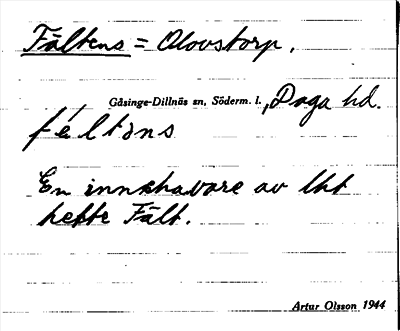 Fältens = Olovstorp,
Gåsinge-Dillnäs sn, Söderm. l., Daga hd.
féltɘns
En innehavare av lht
hette Fält.
Artur Olsson 1944